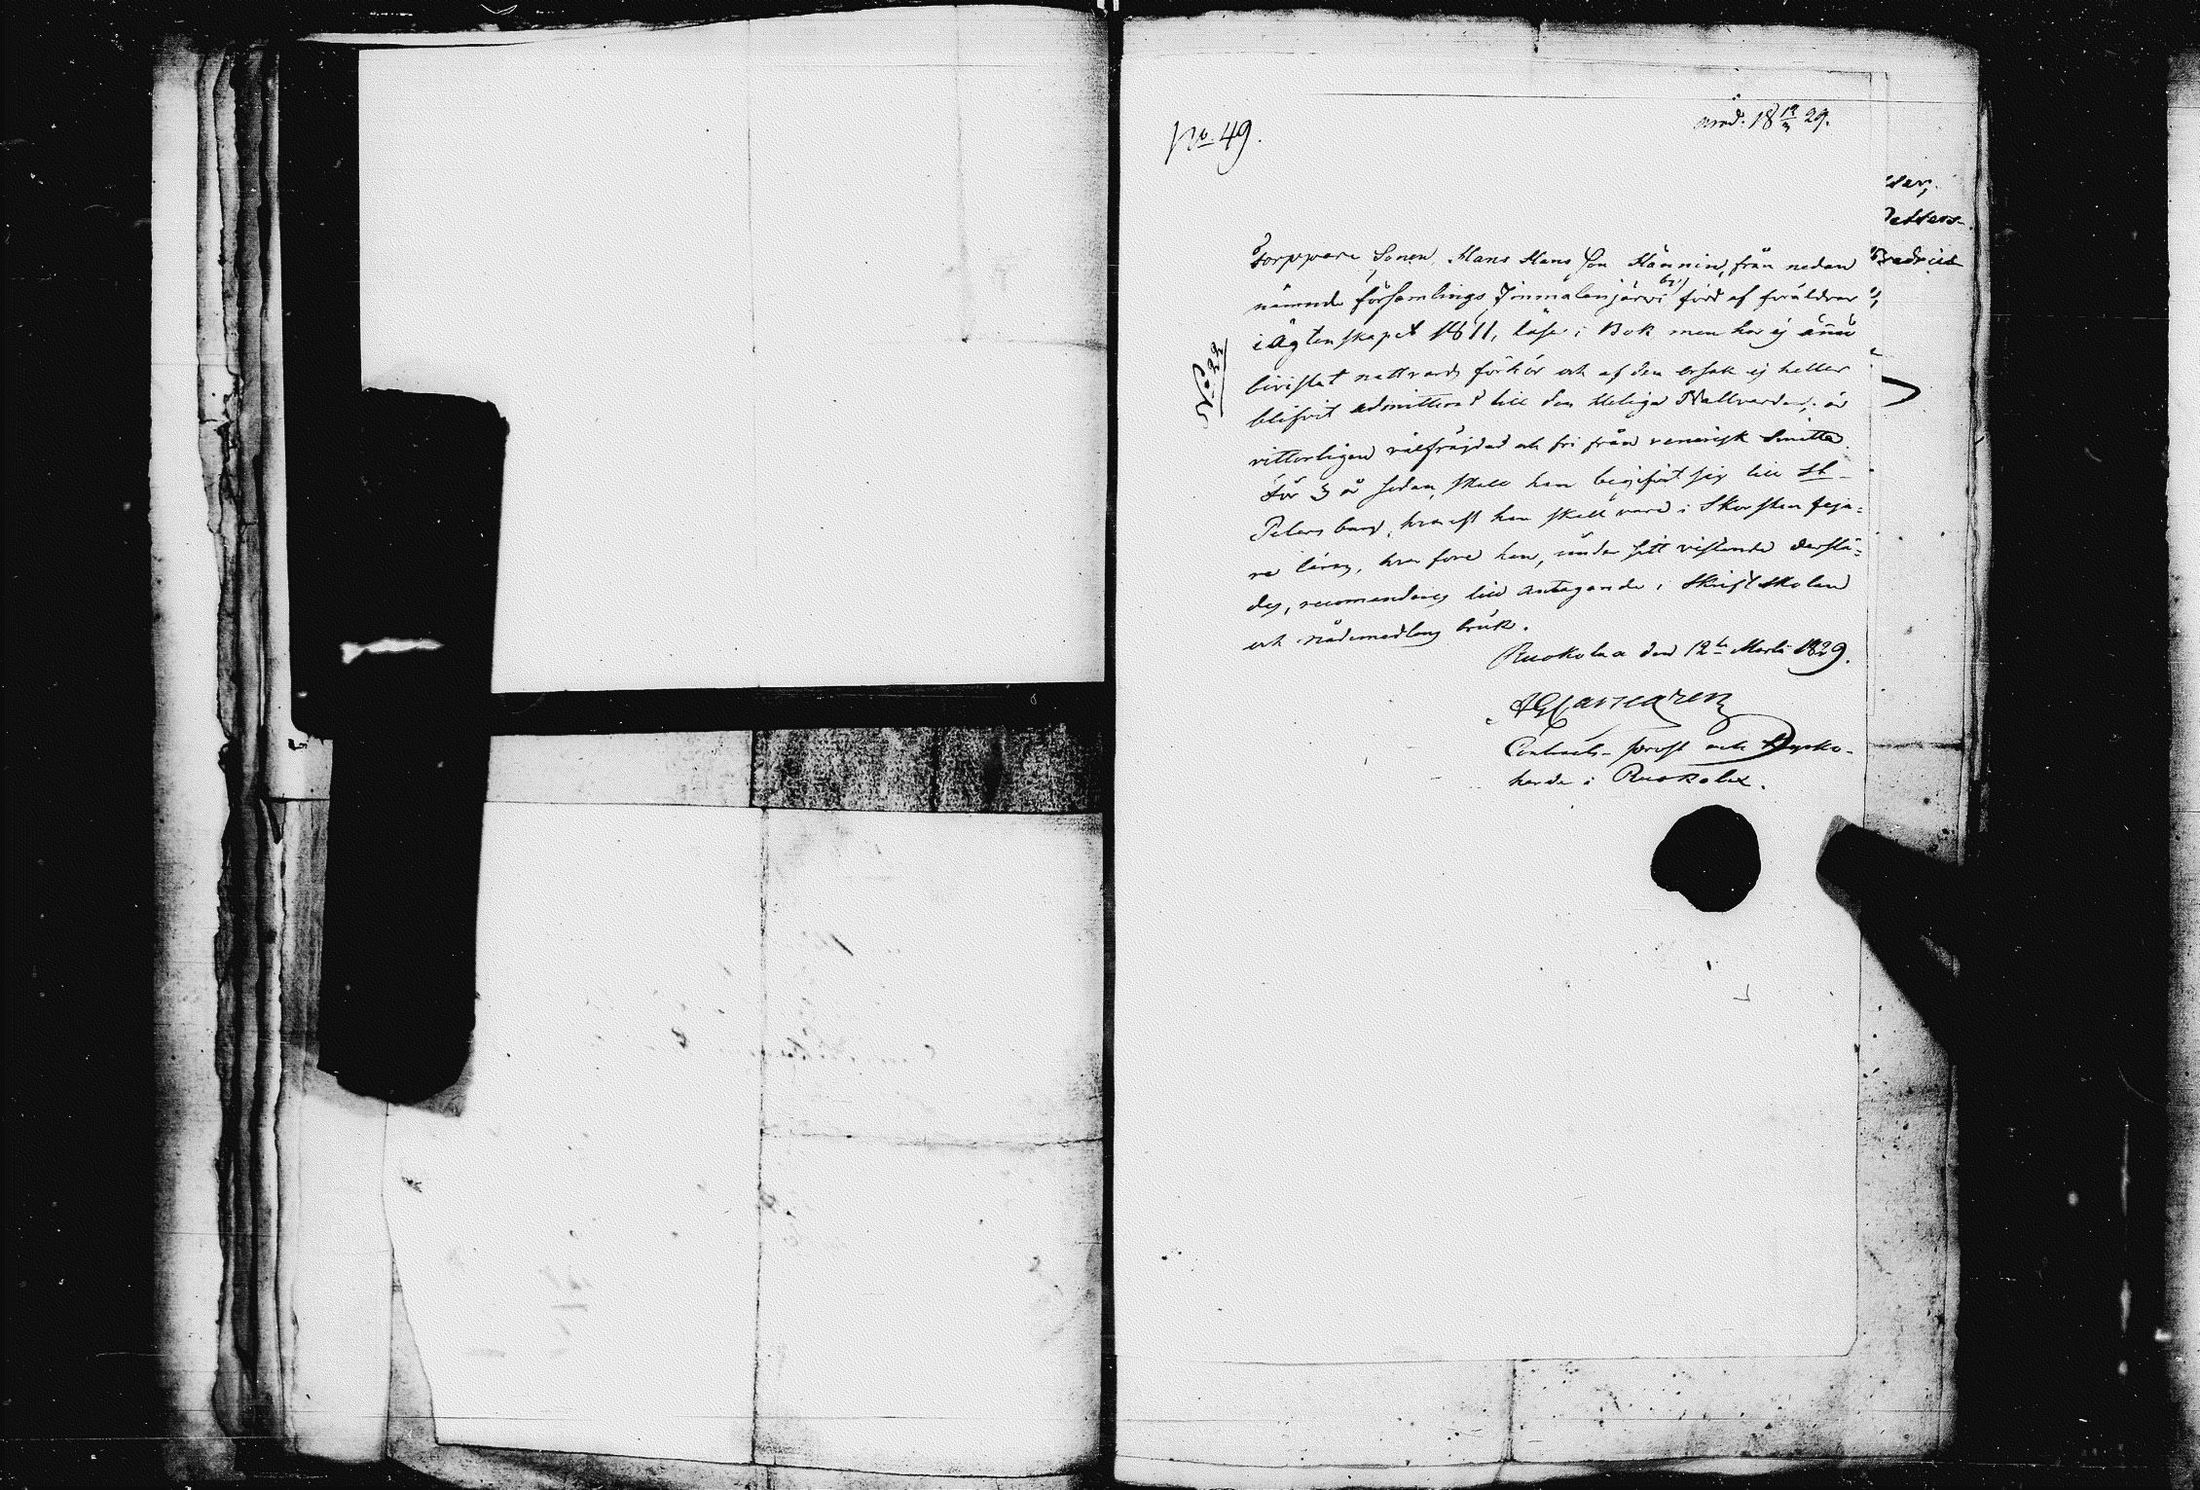 No. 49.
ankd: 18 12/3 29.
Torppare Sonen, Hans Hans Son Hännin, från nedan
nämnde församlings Immalanjärvi by, född af föräldrar
i Ägtenskapet 1811, läser i Bok men har ej ännu
bevistat nattvards förhör och af den orsak ej heller
blifvit admitterad till den Heliga Nattvarden; är
vitterligen välfräjdad och fri från venerisk Smitta.
För 3 år sedan, skall han begifvit sig till St
Petersburg, hvarest han skall vara i Skorstens feja=
re lära, hvarföre han, under sitt vistande derstä=
des, recomenderas till antagande i Skriftskolan
och nådemedlens bruk.
Ruokolax den 12te Martii 1829.
Contracts-prost och Kyrko-
herde i Ruokolax.
No 322
ser,
Petters-
Fredrick